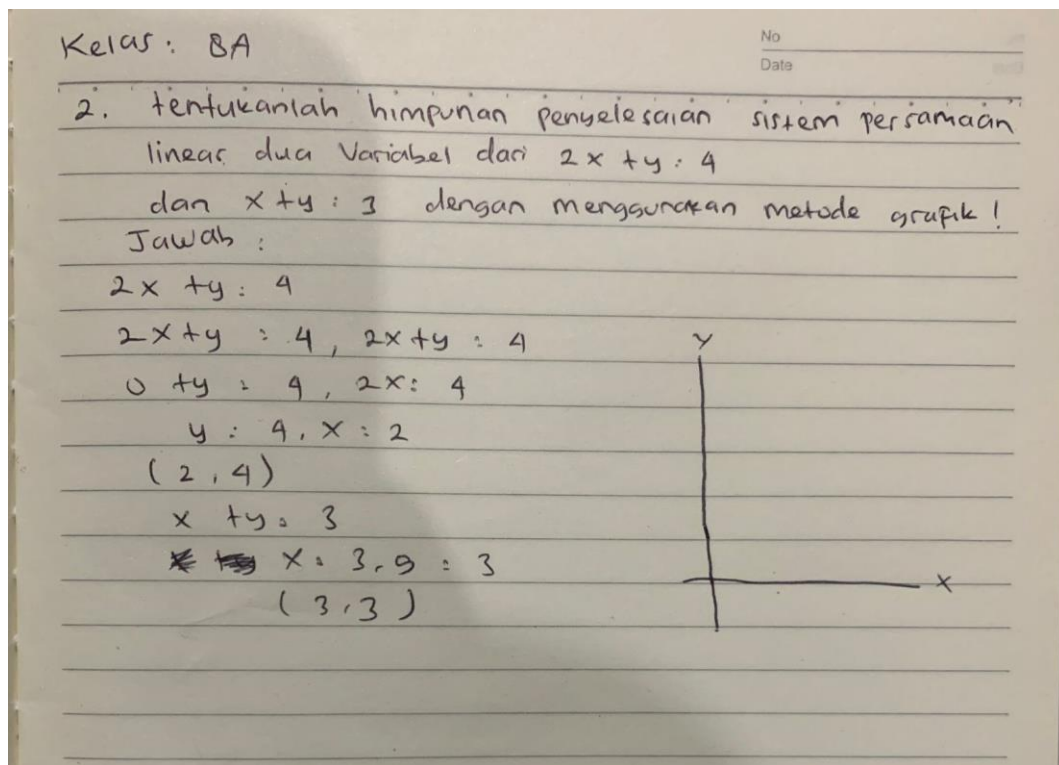 Kelas: 8A
No
Date
2. tentukanlah himpunan penyelesaian sistem persamaan
linear dua Variabel dari 2x + y : 4
dan x + y : 3 dengan menggunakan metode grafik !
Jawab :
2x + y : 4
2x + y : 4, 2x + y : 4
0 + y : 4, 2x : 4
y : 4, x : 2
(2, 4)
x + y : 3
x : 3, y : 3
(3, 3)
Y
X